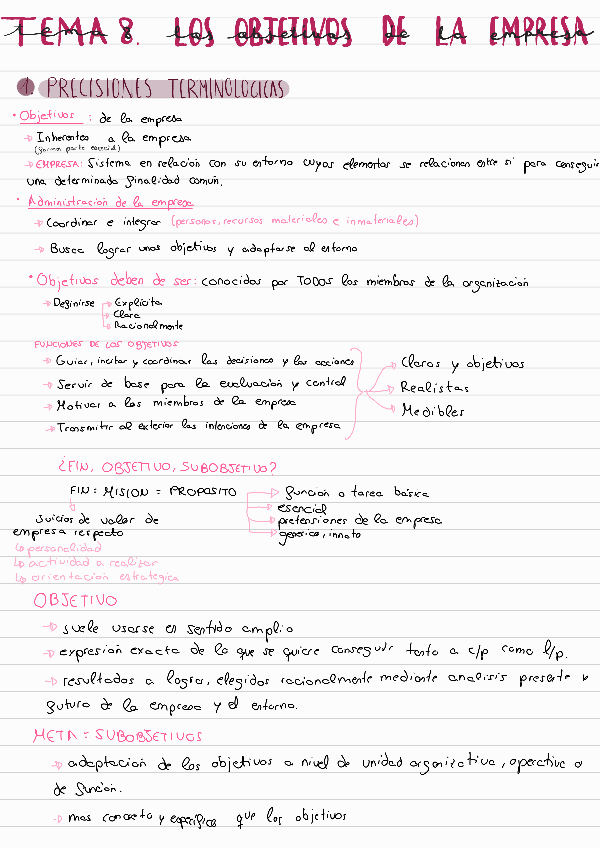 TEMA 8. LOS OBJETIVOS DE LA EMPRESA
Tema 8. Los objetivos de la empresa
1. PRECISIONES TERMINOLOGICAS
• Objetivos : de la empresa
→ Inherentes a la empresa
(forman parte esencial)
→ EMPRESA: Sistema en relación con su entorno cuyos elementos se relacionan entre sí para conseguir
una determinada finalidad común.
• Administración de la empresa
→ Coordinar e integrar (personas, recursos materiales e inmateriales)
→ Busca lograr unos objetivos y adaptarse al entorno
• Objetivos deben de ser: conocidos por TODOS los miembros de la organización
→ Definirse → Explícita
→ Clara
→ Racionalmente
FUNCIONES DE LOS OBJETIVOS
→ Guiar, incitar y coordinar las decisiones y las acciones
→ Servir de base para la evaluación y control
→ Motivar a los miembros de la empresa
→ Transmitir al exterior las intenciones de la empresa
→ Claros y objetivos
→ Realistas
→ Medibles
¿FIN, OBJETIVO, SUBOBJETIVO?
FIN = MISION = PROPOSITO → función o tarea básica
→ esencial
→ pretensiones de la empresa
→ generica, innato
Juicios de valor de
empresa respecto
↳ personalidad
↳ actividad a realizar
↳ orientación estrategica
OBJETIVO
→ suele usarse en sentido amplio
→ expresion exacta de lo que se quiere conseguir tanto a c/p como l/p.
→ resultados a lograr, elegidos racionalmente mediante analisis presente y
futuro de la empresa y el entorno.
META = SUBOBJETIVOS
→ adaptación de los objetivos a nivel de unidad organizativa, operativa o
de función.
→ mas concreto y específico que los objetivos